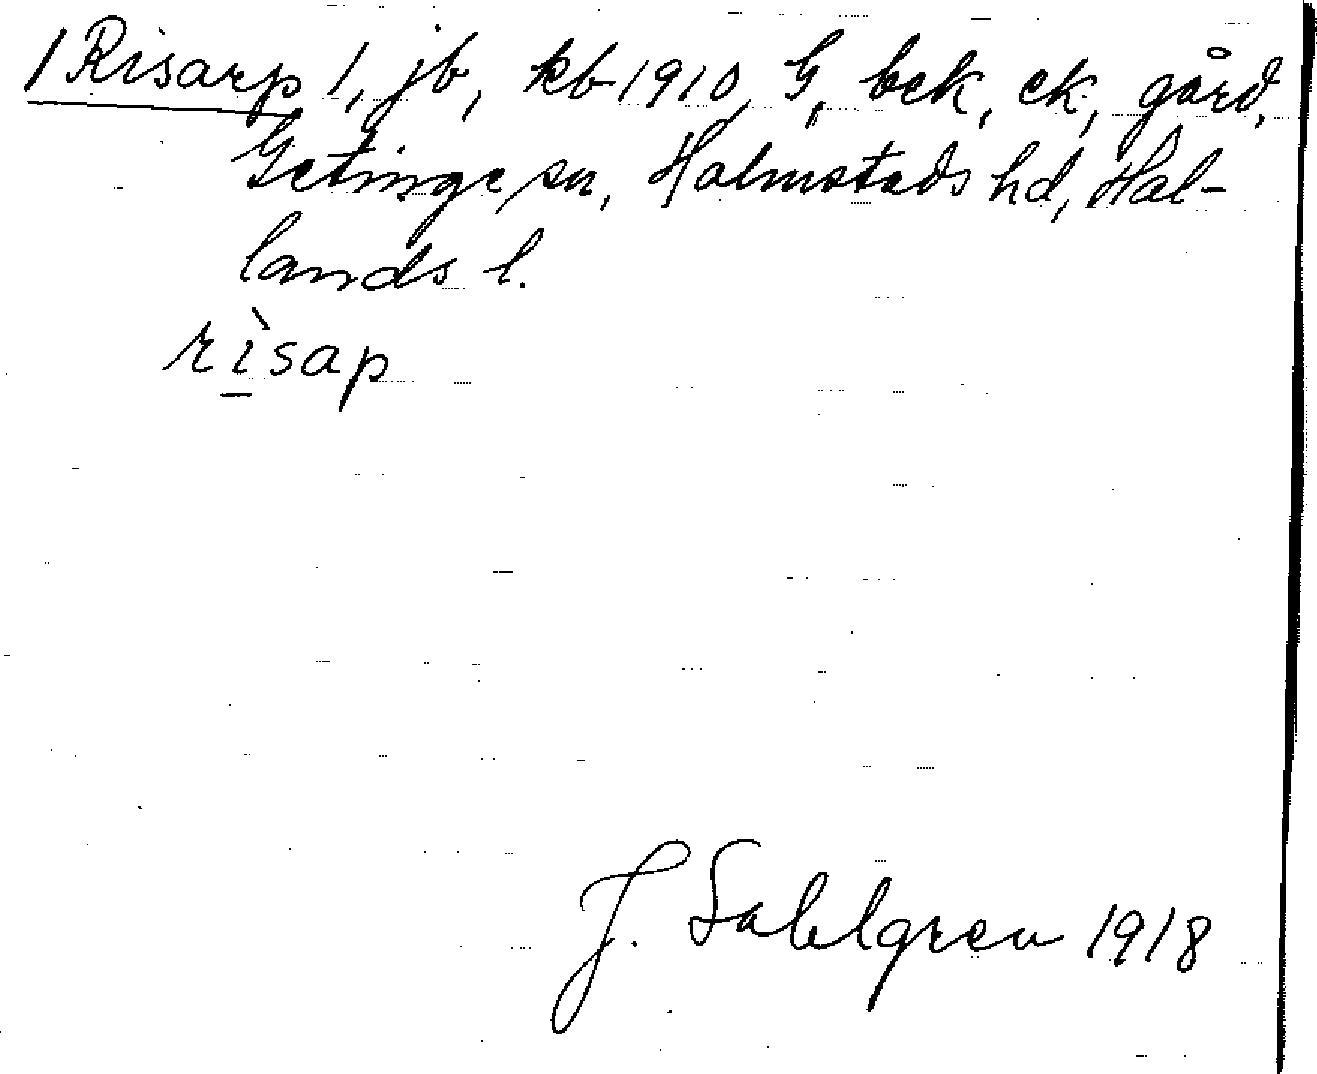 1 Risarp 1, jb, kb 1910, G, bek, ek, gård,
Getinge sn, Halmstads hd, Hal-
lands l.
rìsap
J. Sahlgren 1918